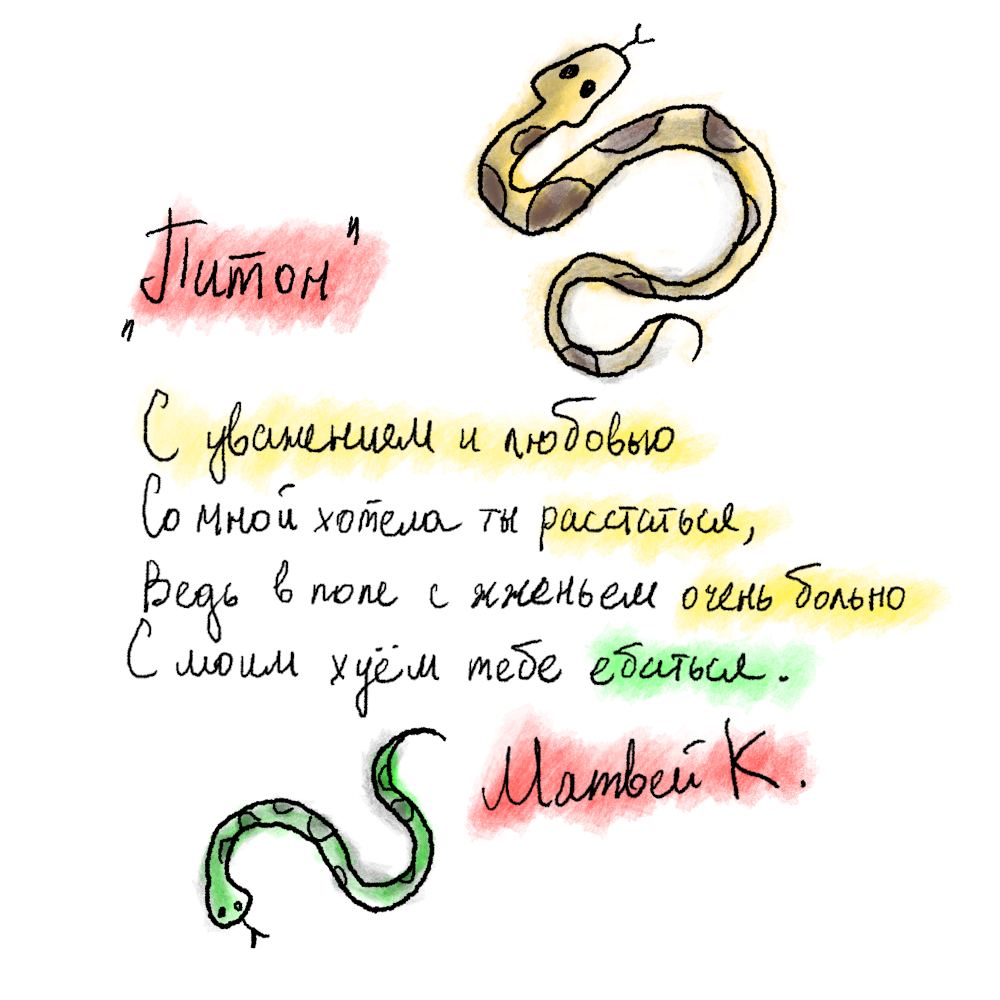 "Питон"
С уважением и любовью
Со мной хотела ты расстаться,
Ведь в попе с жженьем очень больно
С моим хуём тебе ебаться.
Матвей К.